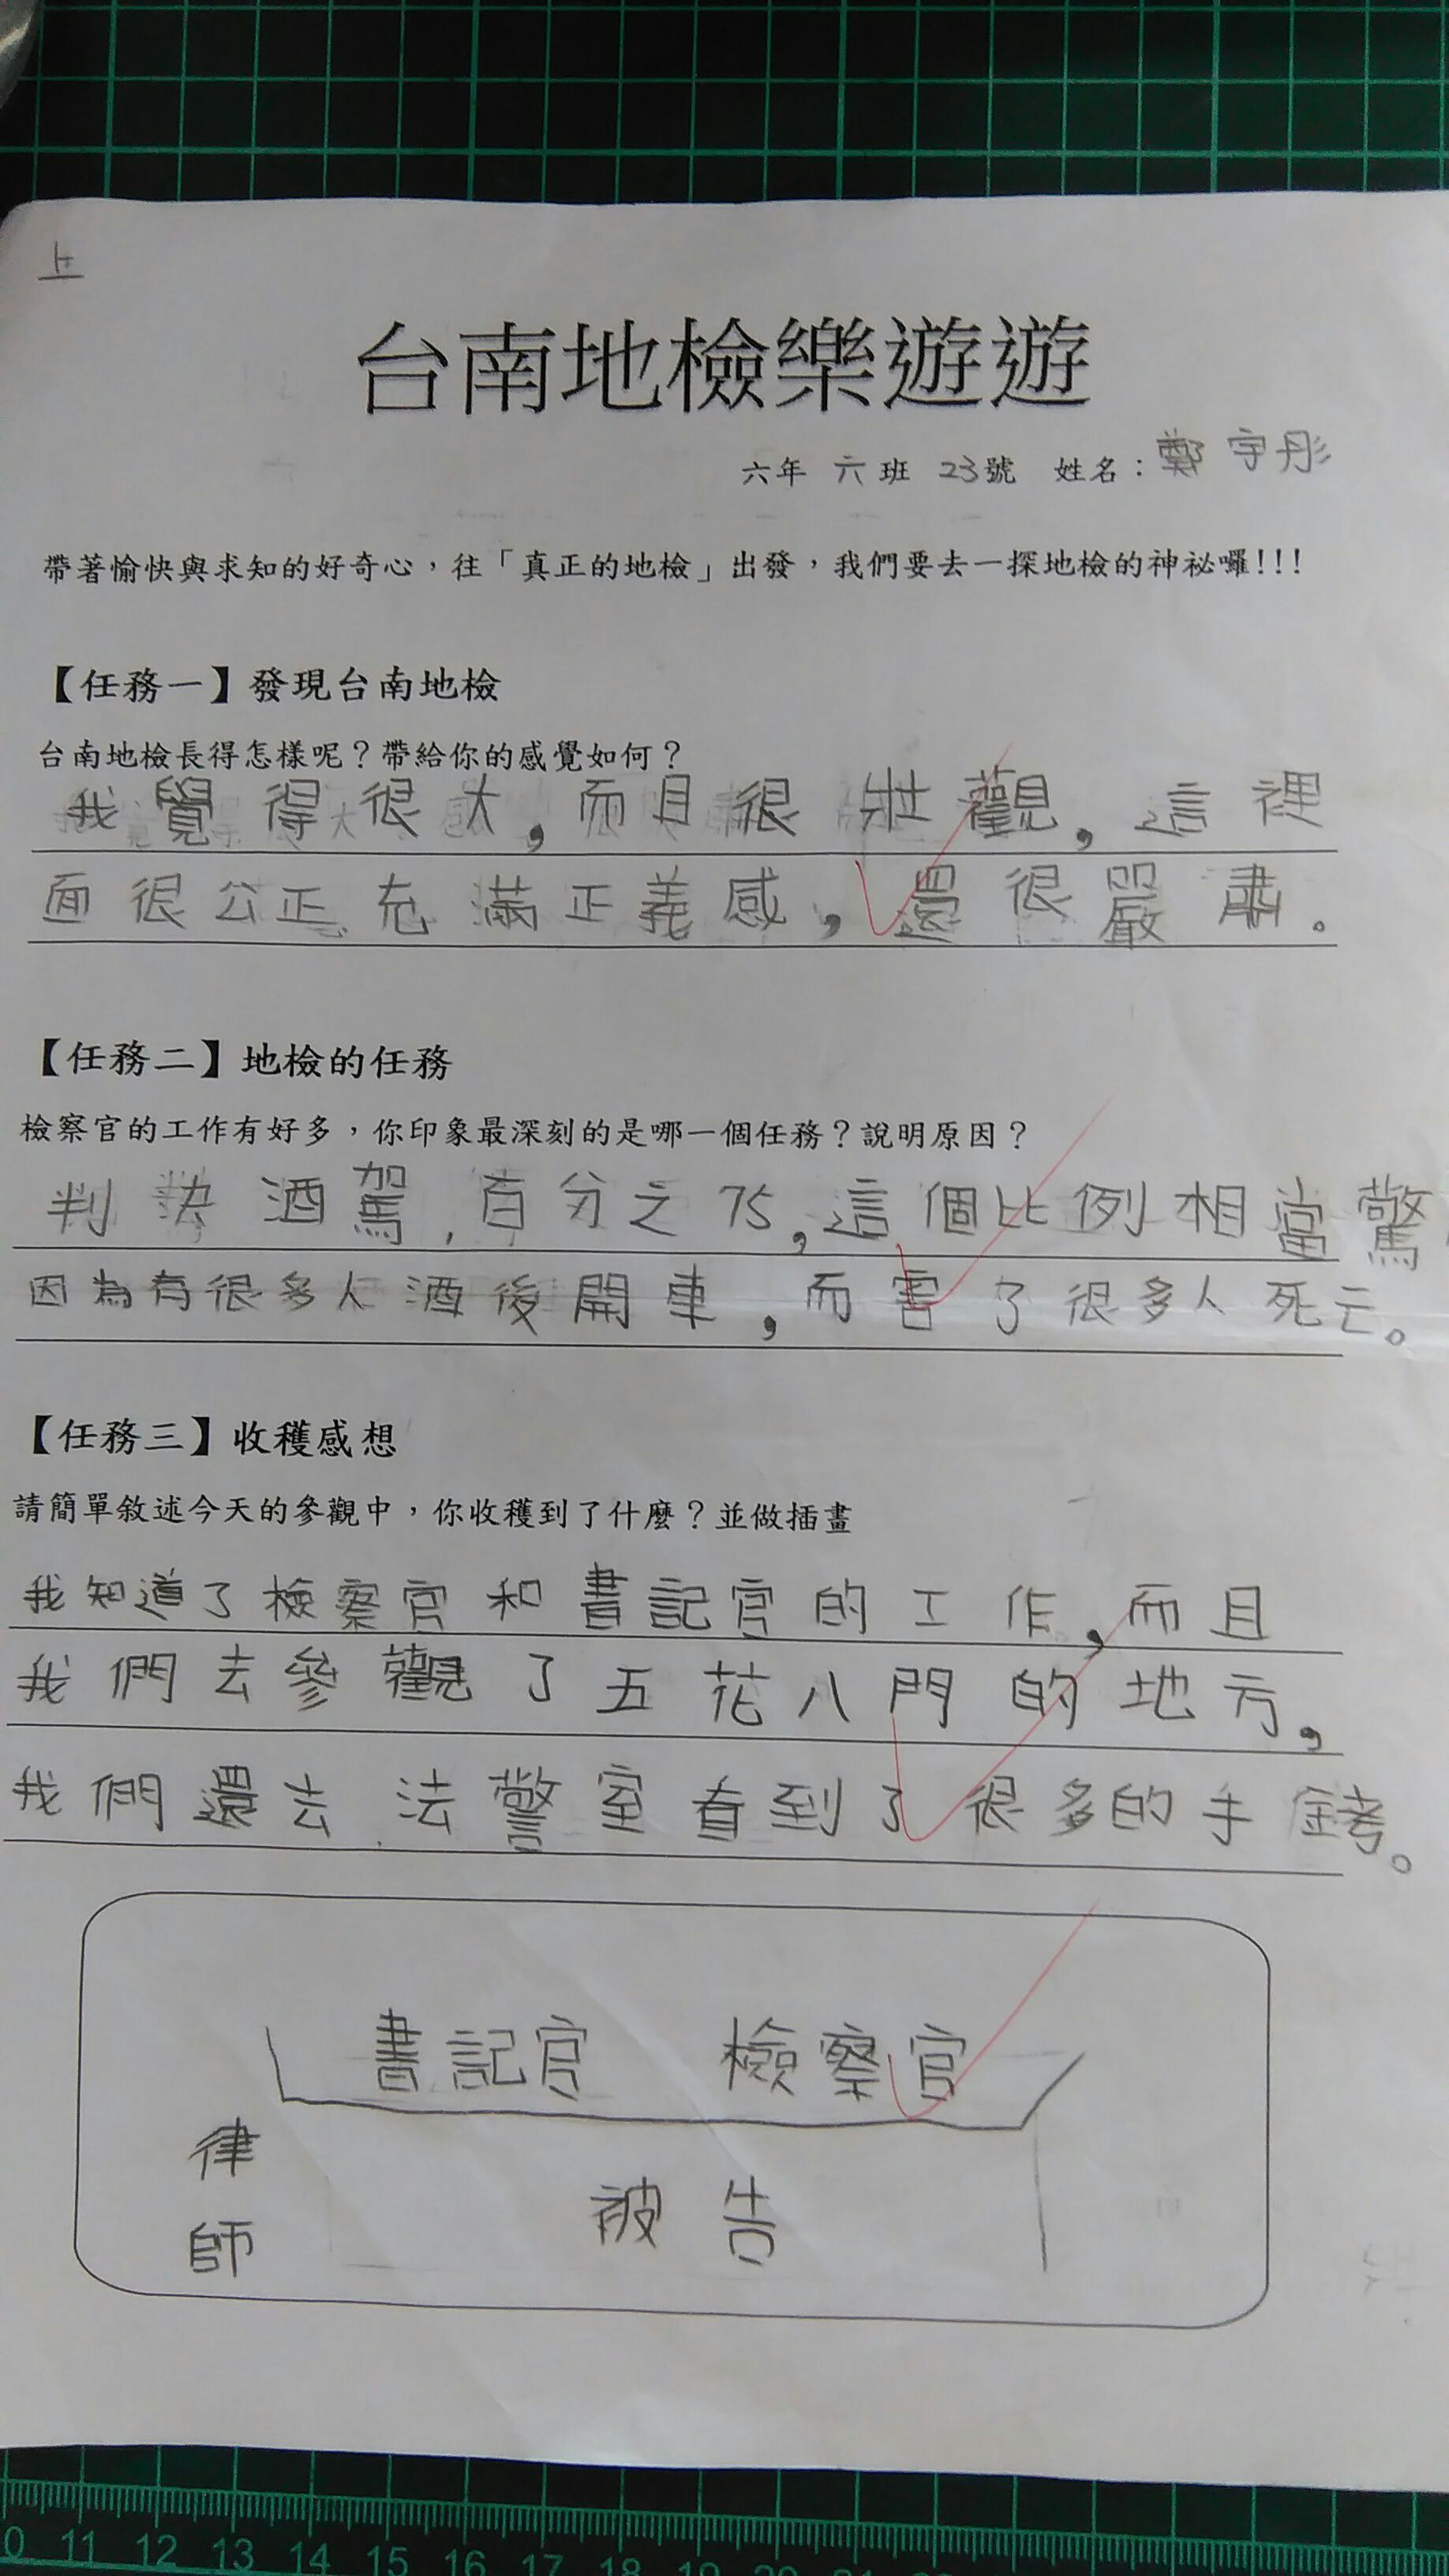 上
台南地檢樂遊遊
六年 六班 23號 姓名：鄭宇彤
帶著愉快與求知的好奇心，往「真正的地檢」出發，我們要去一探地檢的神祕囉!!!
【任務一】發現台南地檢
台南地檢長得怎樣呢？帶給你的感覺如何？
我覺得很大，而且很壯觀，這裡
面很公正、充滿正義感，還很嚴肅。
【任務二】地檢的任務
檢察官的工作有好多，你印象最深刻的是哪一個任務？說明原因？
判決酒駕，百分之75，這個比例相當驚
因為有很多人酒後開車，而害了很多人死亡。
【任務三】收穫感想
請簡單敘述今天的參觀中，你收穫到了什麼？並做插畫
我知道了檢察官和書記官的工作，而且
我們去參觀了五花八門的地方，
我們還去法警室看到了很多的手銬。
書記官 檢察官
律師
被告
0 11 12 13 14 15 16 17 18 19 20 21